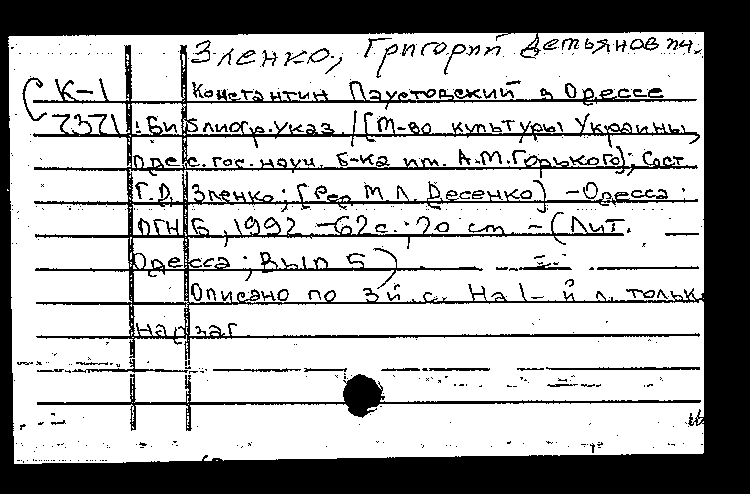 Зленко, Григорий Демьянович.
К-1 Константин Паустовский в Одессе
2321 : Библиогр. указ. / [М-во культуры Украины,
Одес. гос. науч. б-ка им. А.М. Горького]; Сост.
Г.Д. Зленко; [Ред. М.Л. Десенко] – Одесса :
ОГНБ, 1992. – 62 с.; 20 см. – (Лит.
Одесса; Вып 5)
Описано по 3й с. На 1-й л. только